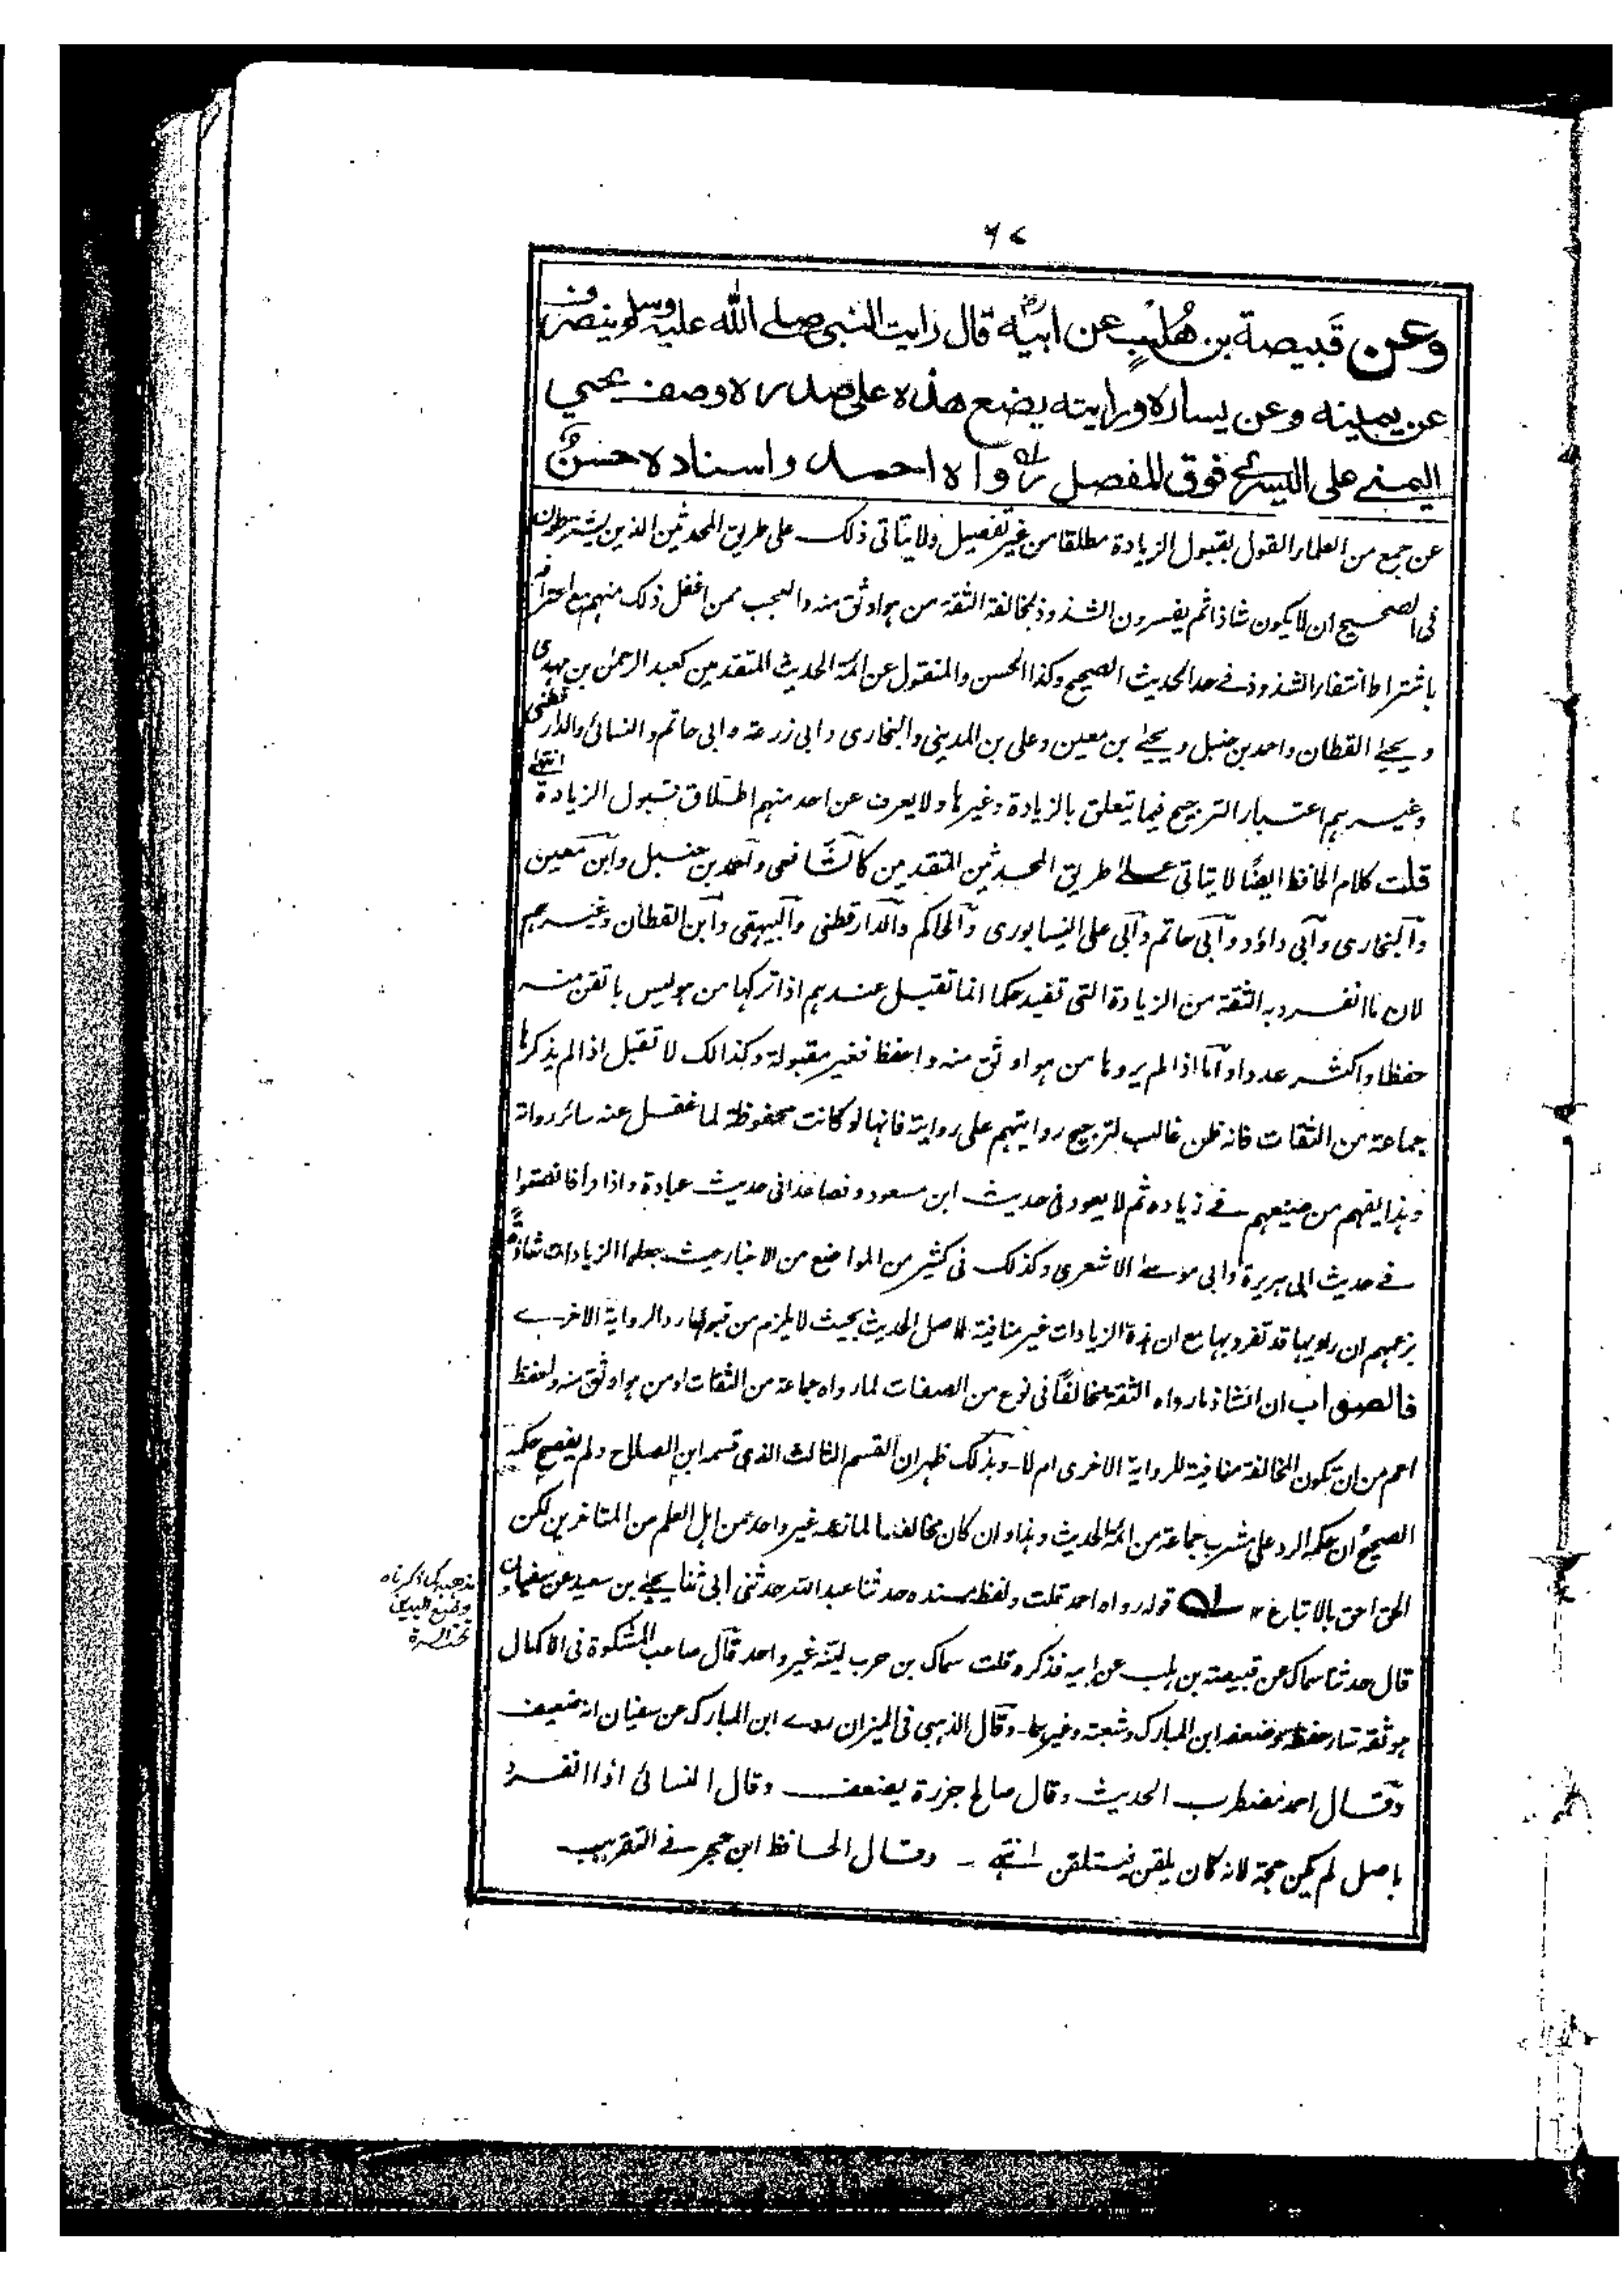 ٦٧
وعن قَبيصة بن هُلْبٍ عن ابيه رض قال رايت النبي صلى الله عليه وسلم ينصرف
عن يمينه وعن يساره ورايته يضع هذه على صدره وصف يحيي
اليمنے على اليسرى فوق المفصل رواه احمد واسناده حسن
عن جمع من العلماء القول بقبول الزيادة مطلقا من غير تفصيل ولا يتأتى ذلك على طريق المحدثين الذين يشترطون
فى الصحيح ان لا يكون شاذا ثم يفسرون الشذوذ بمخالفة الثقة من هو اوثق منه والعجب ممن اغفل ذلك منهم مع اعترافه
باشتراط انتفاء الشذوذ فے حد الحديث الصحيح وكذا الحسن والمنقول عن ائمة الحديث المتقدمين كعبد الرحمن بن مهدى
ويحيے القطان واحمد بن حنبل ويحيے بن معين وعلى بن المدينى والبخارى وابى زرعة وابى حاتم والنسائى والدارقطنى
وغيرهم اعتبار الترجيح فيما يتعلق بالزيادة وغيرها ولا يعرف عن احد منهم اطلاق قبول الزيادة انتهے
قلت كلام الحافظ ايضًا لا يتاتى علے طريق المحدثين المتقدمين كالشافعى واحمد بن حنبل وابن معين
والبخارى وابى داؤد وابى حاتم وابى على النيسابورى والحاكم والدارقطنى والبيهقى وابن القطان وغيرهم
لان ما انفرد به الثقة من الزيادة التى تفيد حكما انما تقبل عندهم اذا تركها من هو ليس باتقن منه
حفظا واكثر عددا واما اذا لم يروها من هو اوثق منه واحفظ فغير مقبولة وكذالك لا تقبل اذا لم يذكرها
جماعة من الثقات فانه ظن غالب لترجيح روايتهم على رواية فانها لو كانت محفوظة لما غفل عنه سائر رواته
وهذا يفهم من صنيعهم فے زيادة ثم لا يعود فى حديث ابن مسعود وفصاعدا فى حديث عبادة واذا قرأ فانصتوا
فے حديث ابى هريرة وابى موسے الاشعرى وكذلك فى كثير من المواضع من الاخبار حيث جعلوا الزيادات شاذةً
بزعمهم ان راويها قد تفرد بها مع ان هذه الزيادات غير منافية لاصل الحديث بحيث لا يلزم من قبولها رد الرواية الاخرے
فالصواب ان الشاذ ما رواه الثقة مخالفًا فى نوع من الصفات لما رواه جماعة من الثقات او من هو اوثق منه واحفظ
اعم من ان تكون المخالفة منافية للرواية الاخرى ام لا - وبذلك ظهر ان القسم الثالث الذى قسمه ابن الصلاح ولم يفصح حكمه
الصحيح ان حكمه الرد على مشرب جماعة من ائمة الحديث وهذا وان كان مخالفا لما زعمه غير واحد من اهل العلم من المتاخرين لكن
الحق احق بالاتباع ١٢ قوله رواه احمد قلت ولفظ مسنده حدثنا عبد الله حدثنى ابى ثنا يحيے بن سعيد عن سفيان
قال حدثنا سماك عن قبيصة بن هلب عن ابيه فذكره قلت سماك بن حرب لينه غير واحد قال صاحب المشكوة فى الاكمال
هو ثقة ساء حفظه وضعفه ابن المبارك وشعبة وغيرهما - وقال الذهبى فى الميزان روے ابن المبارك عن سفيان انه ضعيف
وقال احمد مضطرب الحديث وقال صالح جزرة يضعف وقال النسائى اذا انفرد
باصل لم يكن حجة لانه كان يلقن فيتلقن انتهے - وقال الحافظ ابن حجر فے التقريب
وضع اليدين
تحت السرة